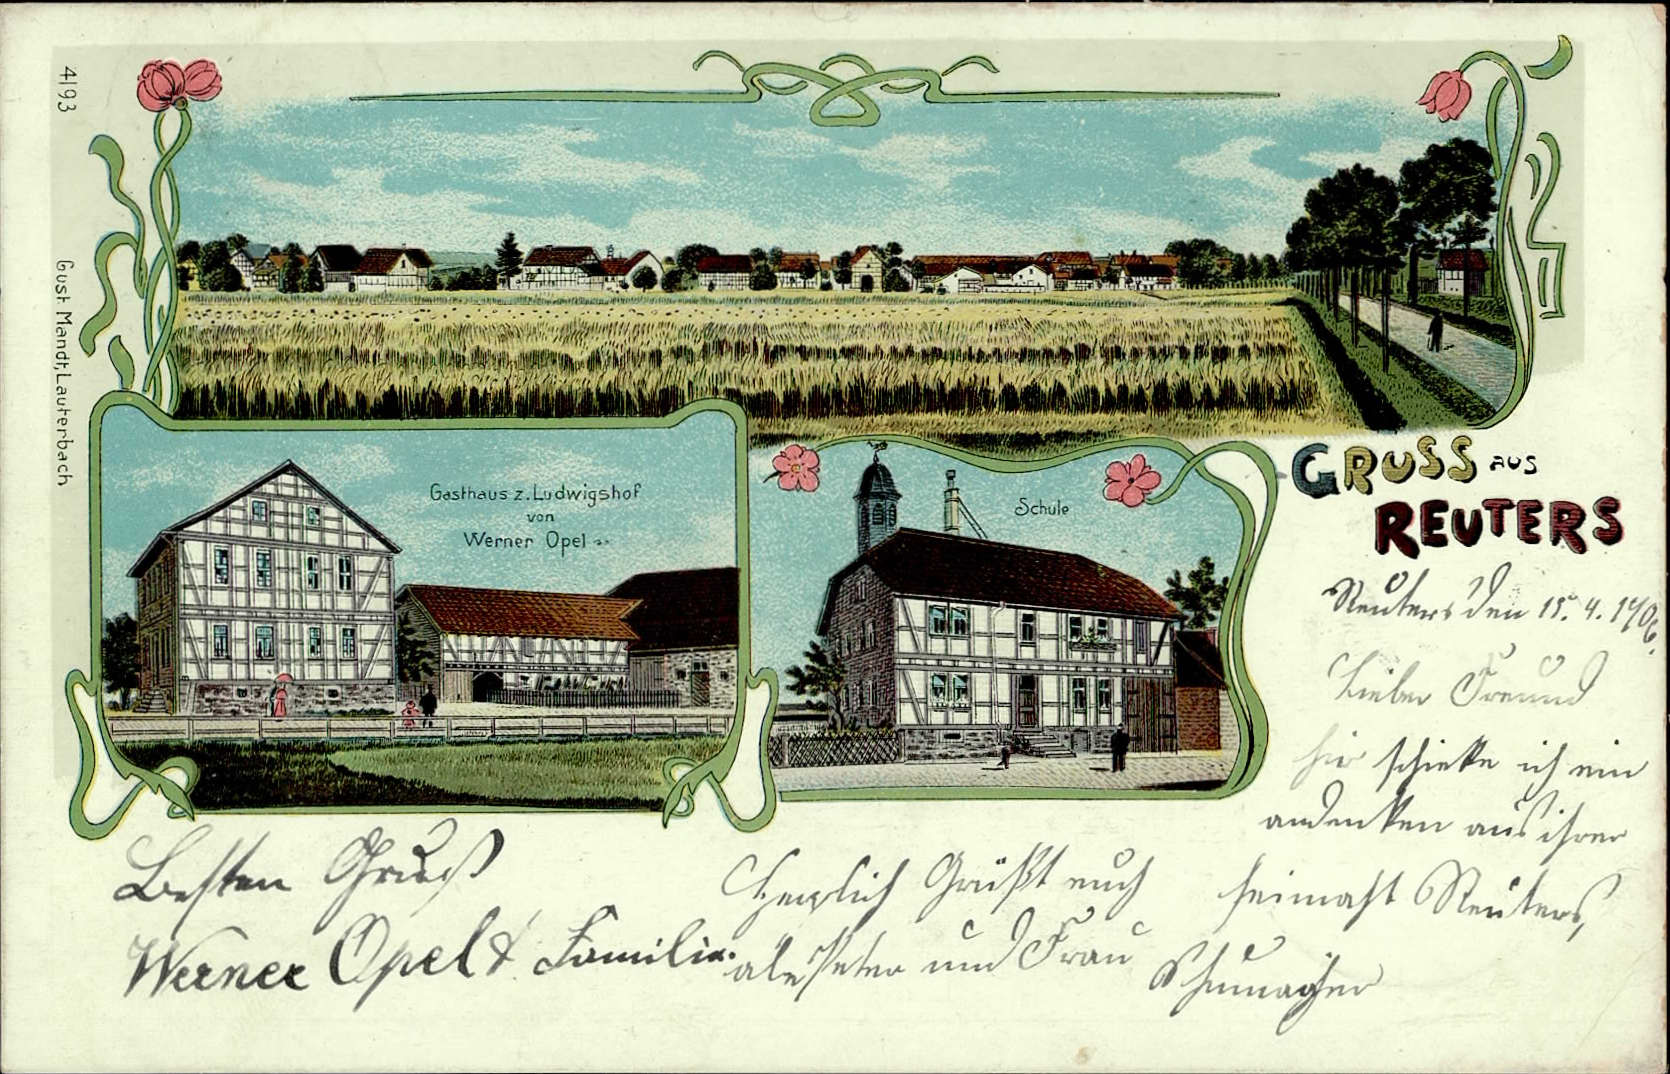 4193
Gust. Mandt, Lauterbach
Gasthaus z. Ludwigshof
von
Werner Opel
Schule
GRUSS AUS
REUTERS
Reuters den 15. 4. 1906.
Lieber Freund
hier schicke ich ein
andenken aus ihrer
heimaht Reuters,
Herzlich Grüßt euch
und Frau
Schumacher
Besten Gruß
Werner Opel & Familie.